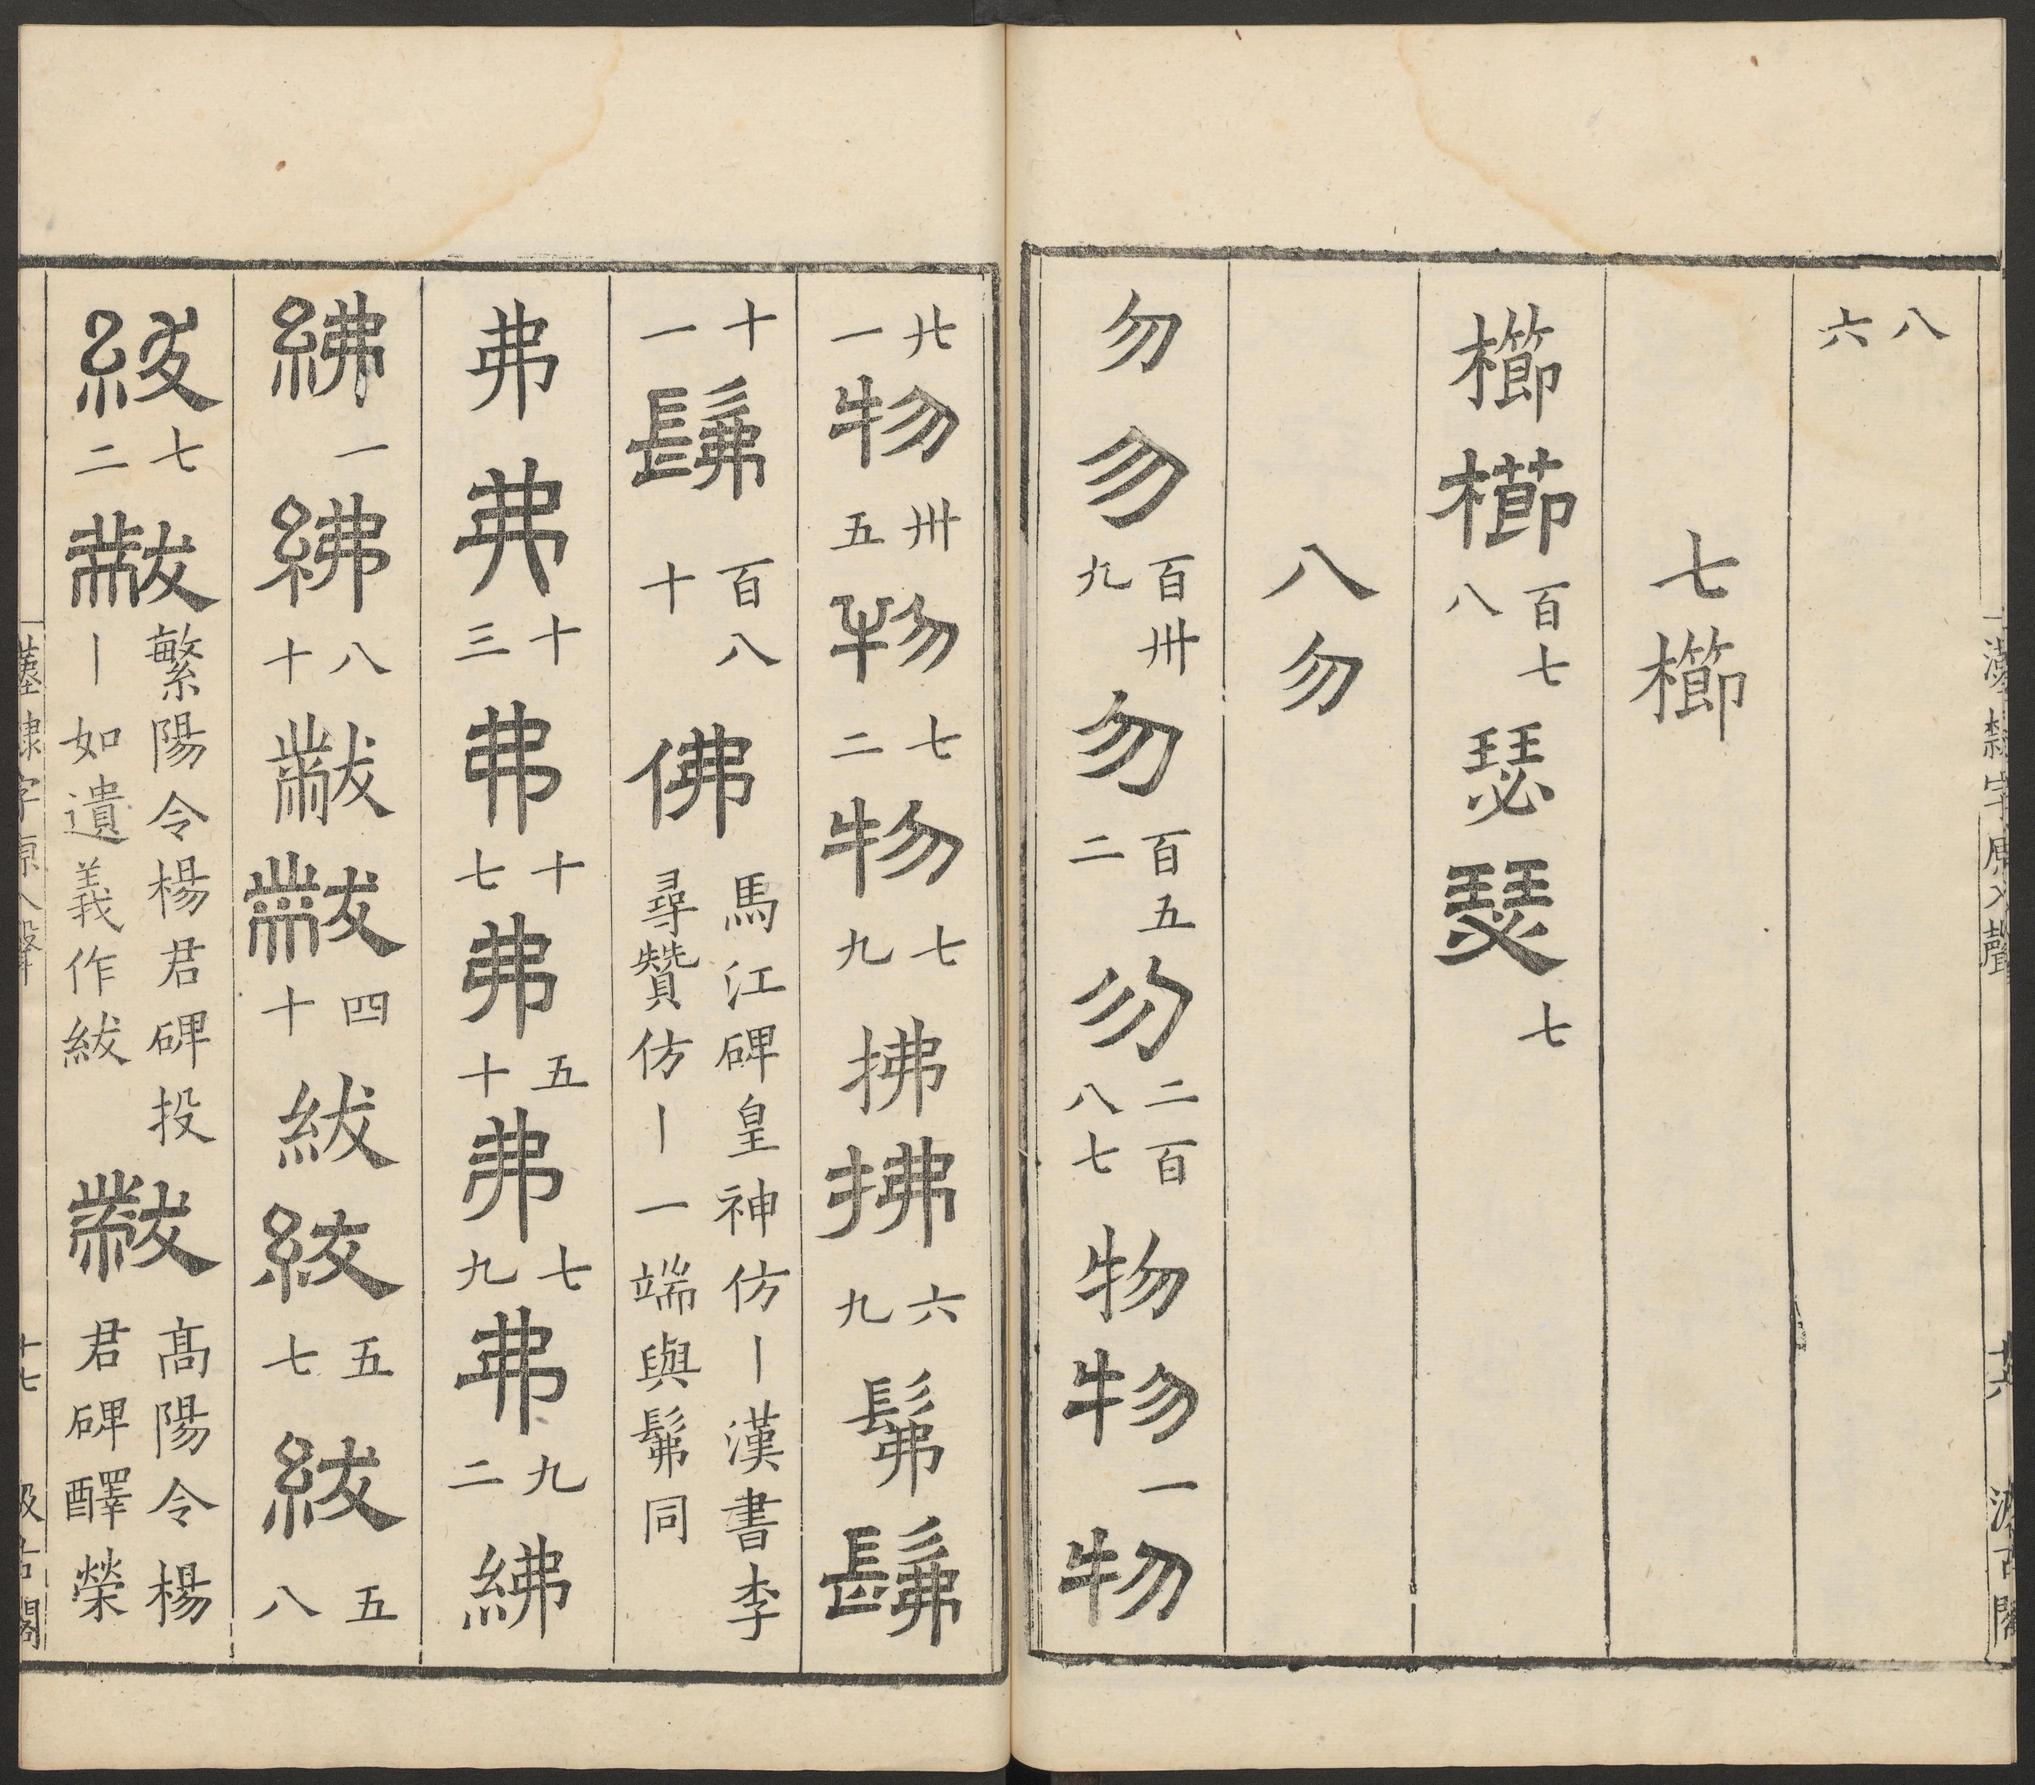 八六
七櫛
櫛櫛百七八瑟瑟七
八勿
勿勿百卌九勿百五二勿二百八七物物一物
廿一物卌五物七二物七九拂拂六九髴髴
十一髴百八十佛馬江碑皇神仿丨漢書李尋贊仿丨一端與髴同
弗弗十三弗十七弗五十弗七九弗九二紼
紼一紼八十黻黻四十紱紱五七紱五八
紱七二黻繁陽令楊君碑投丨如遺義作紱黻高陽令楊君碑醳榮
漢隸字原入聲 十六 汲古閣
漢隸字原入聲 十七 汲古閣